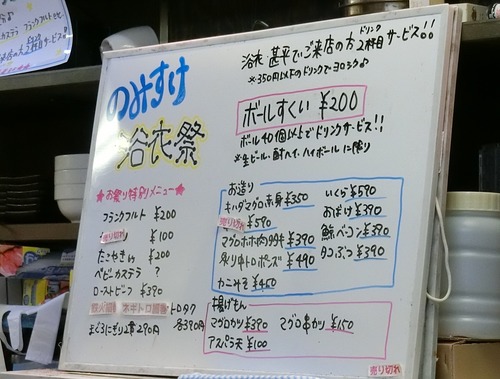 のみすけ
浴衣祭
浴衣 甚平でご来店の方 ドリンク2杯目サービス!!
※350円以下のドリンクでヨロシク♪
ボールすくい ¥200
ボール40個以上でドリンクサービス!!
※生ビール・酎ハイ・ハイボールに限り
★お祭り特別メニュー★
フランクフルト ¥200
売り切れ ¥100
たこやき ¥200
ベビーカステラ ?
ローストビーフ ¥390
鉄火巻 ネギトロ巻 トロタク
まぐろにぎり2貫290円 各390円
お造り
キハダマグロ赤身 ¥350
売り切れ ¥590
マグロホホ肉タタキ ¥390
炙り中トロポンズ ¥490
カニみそ ¥450
いくら ¥590
おばけ ¥390
鯨ベーコン ¥390
タコぶつ ¥390
揚げもん
マグロカツ ¥390 マグロ串カツ ¥150
アスパラ天 ¥100
売り切れ